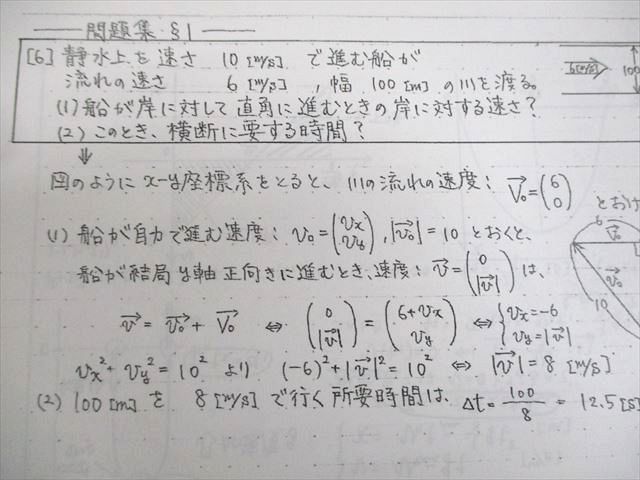 問題集 §1
[6] 静水上を速さ 10 [m/s] で進む船が
流れの速さ 6 [m/s] , 幅 100 [m] の川を渡る。
(1) 船が岸に対して直角に進むときの岸に対する速さ?
(2) このとき、横断に要する時間?
6[m/s]
100
⇓
図のように x-y座標系をとると、川の流れの速度: \vec{V_0} = \begin{pmatrix} 6 \\ 0 \end{pmatrix} とおけ
(1) 船が自力で進む速度: v_0 = \begin{pmatrix} v_x \\ v_y \end{pmatrix}, |\vec{v_0}| = 10 とおくと、
船が結局 y軸正向きに進むとき、速度: \vec{v} = \begin{pmatrix} 0 \\ |\vec{v}| \end{pmatrix} は、
\vec{v} = \vec{v_0} + \vec{V_0} ⇔ \begin{pmatrix} 0 \\ |\vec{v}| \end{pmatrix} = \begin{pmatrix} 6+v_x \\ v_y \end{pmatrix} ⇔ \begin{cases} v_x = -6 \\ v_y = |\vec{v}| \end{cases}
v_x^2 + v_y^2 = 10^2 より (-6)^2 + |\vec{v}|^2 = 10^2 ⇔ |\vec{v}| = 8 [m/s]
(2) 100 [m] を 8 [m/s] で行く所要時間は、Δt = \frac{100}{8} = 12.5 [s]
6
\vec{v_0}
10